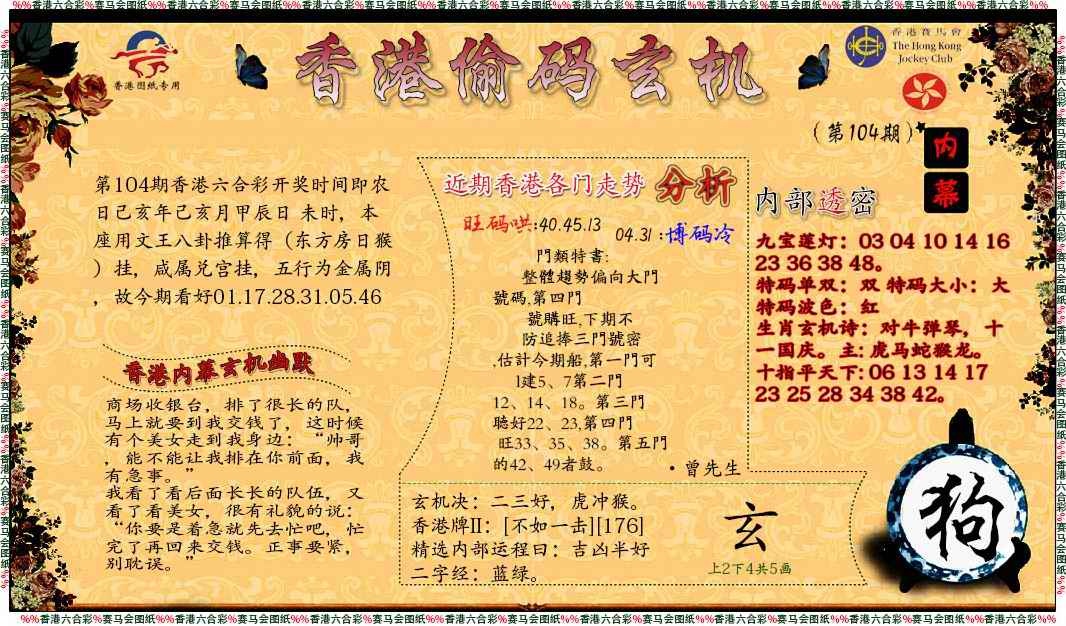 %%香港六合彩%赛马会图纸%%香港六合彩%赛马会图纸%%香港六合彩%赛马会图纸%%香港六合彩%赛马会图纸%%香港六合彩%赛马会图纸%%香港六合彩%赛马会图纸%%香港六合彩%赛马会图纸%%香港六合彩%%
香港图纸专用
香港偷码玄机
香港賽馬會
The Hong Kong
Jockey Club
(第104期)
内
幕
第104期香港六合彩开奖时间即农
日己亥年己亥月甲辰日 未时，本
座用文王八卦推算得（东方房日猴
）挂，咸属兑宫挂，五行为金属阴
，故今期看好01.17.28.31.05.46
香港内幕玄机幽默
商场收银台，排了很长的队，
马上就要到我交钱了，这时候
有个美女走到我身边：“帅哥
，能不能让我排在你前面，我
有急事。”
我看了看后面长长的队伍，又
看了看美女，很有礼貌的说：
“你要是着急就先去忙吧，忙
完了再回来交钱。正事要紧，
别耽误。”
近期香港各门走势 分析
旺码哄:40.45.13
04.31 :博码冷
門類特書:
整體趨勢偏向大門
號碼,第四門
號購旺,下期不
防追捧三門號密
,估計今期船,第一門可
1建5、7第二門
12、14、18。第三門
聰好22、23,第四門
旺33、35、38。第五門
的42、49者鼓。
·曾先生
玄机决：二三好，虎冲猴。
香港牌II：[不如一击][176]
精选内部运程曰：吉凶半好
二字经：蓝绿。
玄
上2下4共5画
内部透密
九宝莲灯：03 04 10 14 16
23 36 38 48。
特码单双：双 特码大小：大
特码波色：红
生肖玄机诗：对牛弹琴，十
一国庆。主:虎马蛇猴龙。
十指平天下:06 13 14 17
23 25 28 34 38 42。
狗
%%香港六合彩%赛马会图纸%%香港六合彩%赛马会图纸%%香港六合彩%赛马会图纸%%香港六合彩%赛马会图纸%%香港六合彩%赛马会图纸%%香港六合彩%赛马会图纸%%香港六合彩%赛马会图纸%%香港六合彩%%